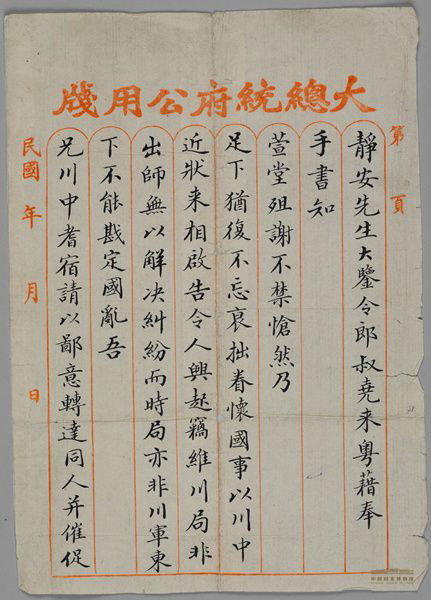 大總統府公用牋
第 頁
靜安先生大鑒令郎叔堯来粤藉奉
手書知
萱堂殂謝不禁愴然乃
足下猶復不忘哀拙眷懷國事以川中
近狀来相啟告令人興起竊維川局非
出師無以解决糾紛而時局亦非川軍東
下不能戡定國亂吾
兄川中耆宿請以鄙意轉達同人并催促
民國 年 月 日